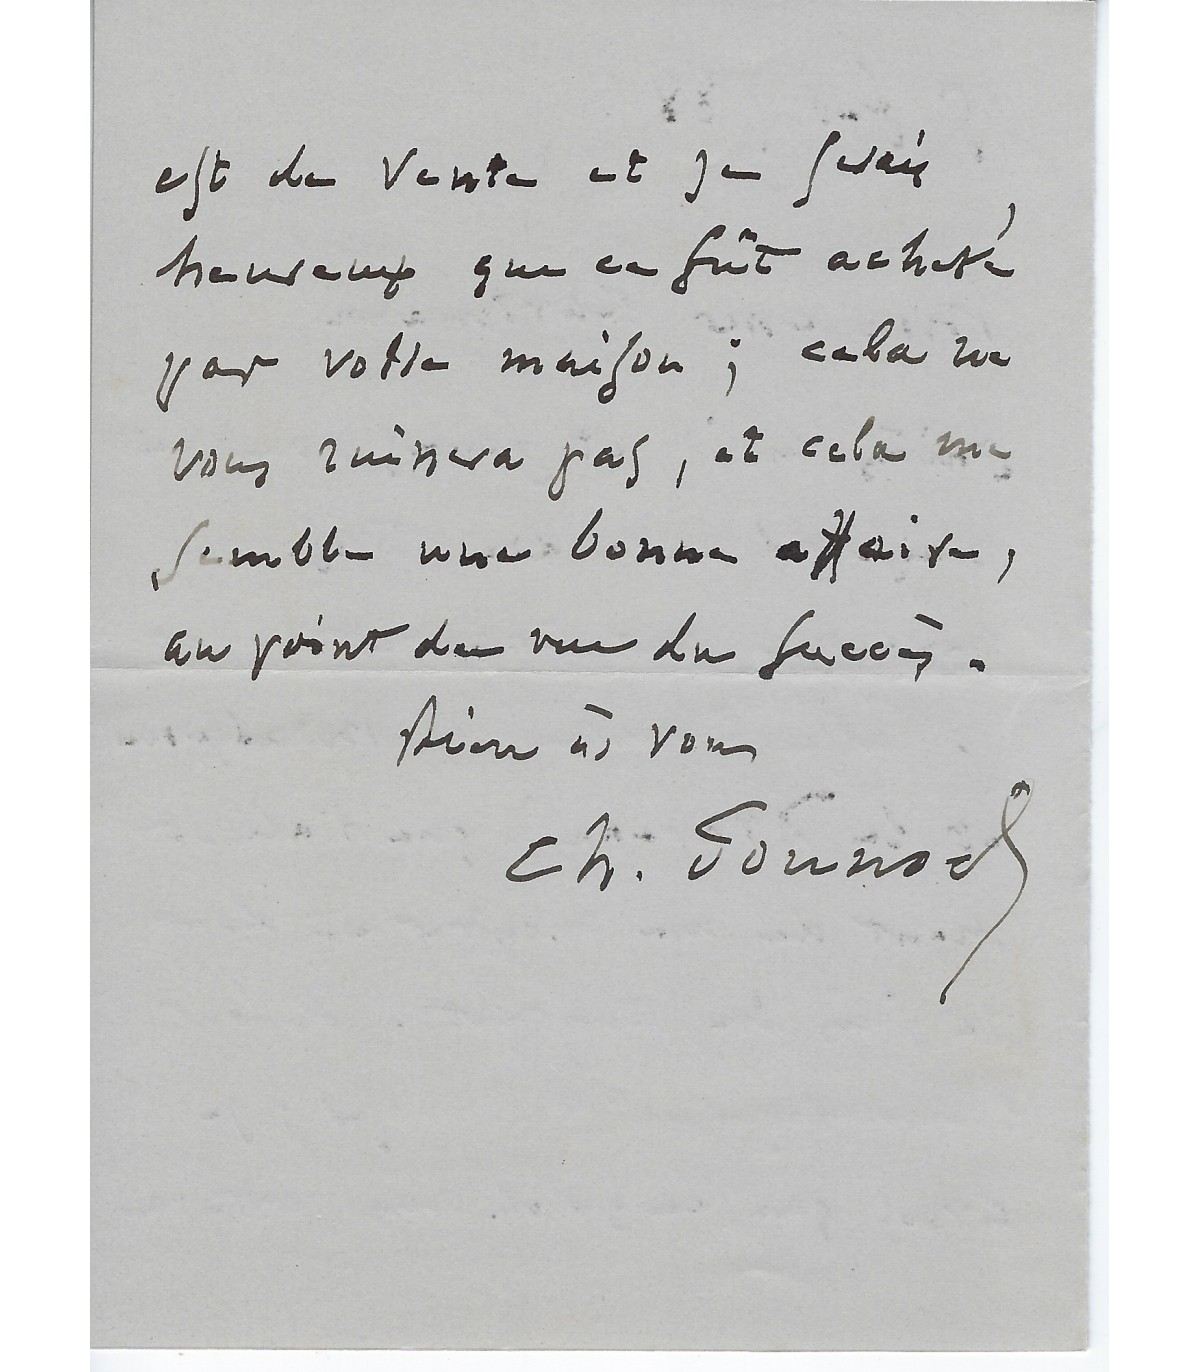 est de vente et je serais
heureux que ce fût acheté
par votre maison ; cela ne
vous ruinera pas, et cela me
semble une bonne affaire,
au point de vue du succès.
Bien à vous
Ch. Gounod